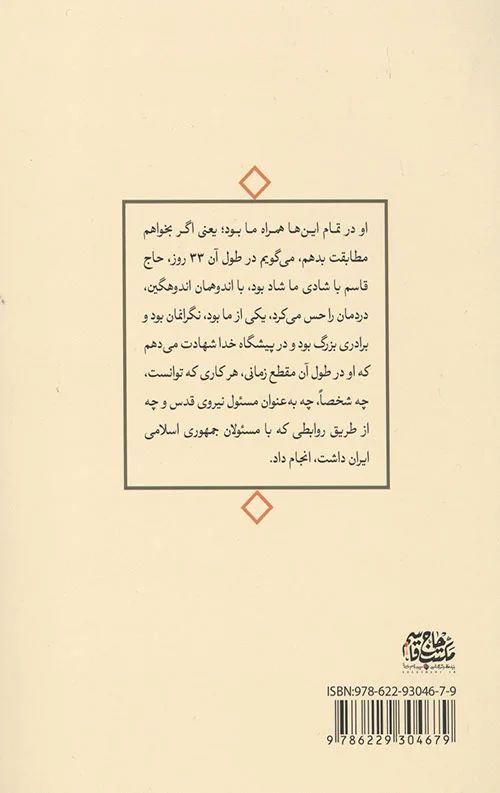 او در تمام این‌ها همراه ما بود؛ یعنی اگر بخواهم
مطابقت بدهم، می‌گویم در طول آن ۳۳ روز، حاج
قاسم با شادی ما شاد بود، با اندوهمان اندوهگین،
دردمان را حس می‌کرد، یکی از ما بود، نگرانمان بود و
برادری بزرگ بود و در پیشگاه خدا شهادت می‌دهم
که او در طول آن مقطع زمانی، هر کاری که توانست،
چه شخصاً، چه به‌عنوان مسئول نیروی قدس و چه
از طریق روابطی که با مسئولان جمهوری اسلامی
ایران داشت، انجام داد.
مکتب حاج قاسم
ISBN:978-622-93046-7-9
9 786229 304679